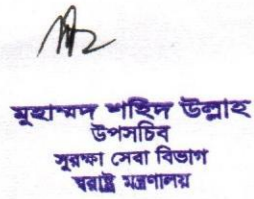 মুহাম্মদ শহিদ উল্লাহ
উপসচিব
সুরক্ষা সেবা বিভাগ
স্বরাষ্ট্র মন্ত্রণালয়